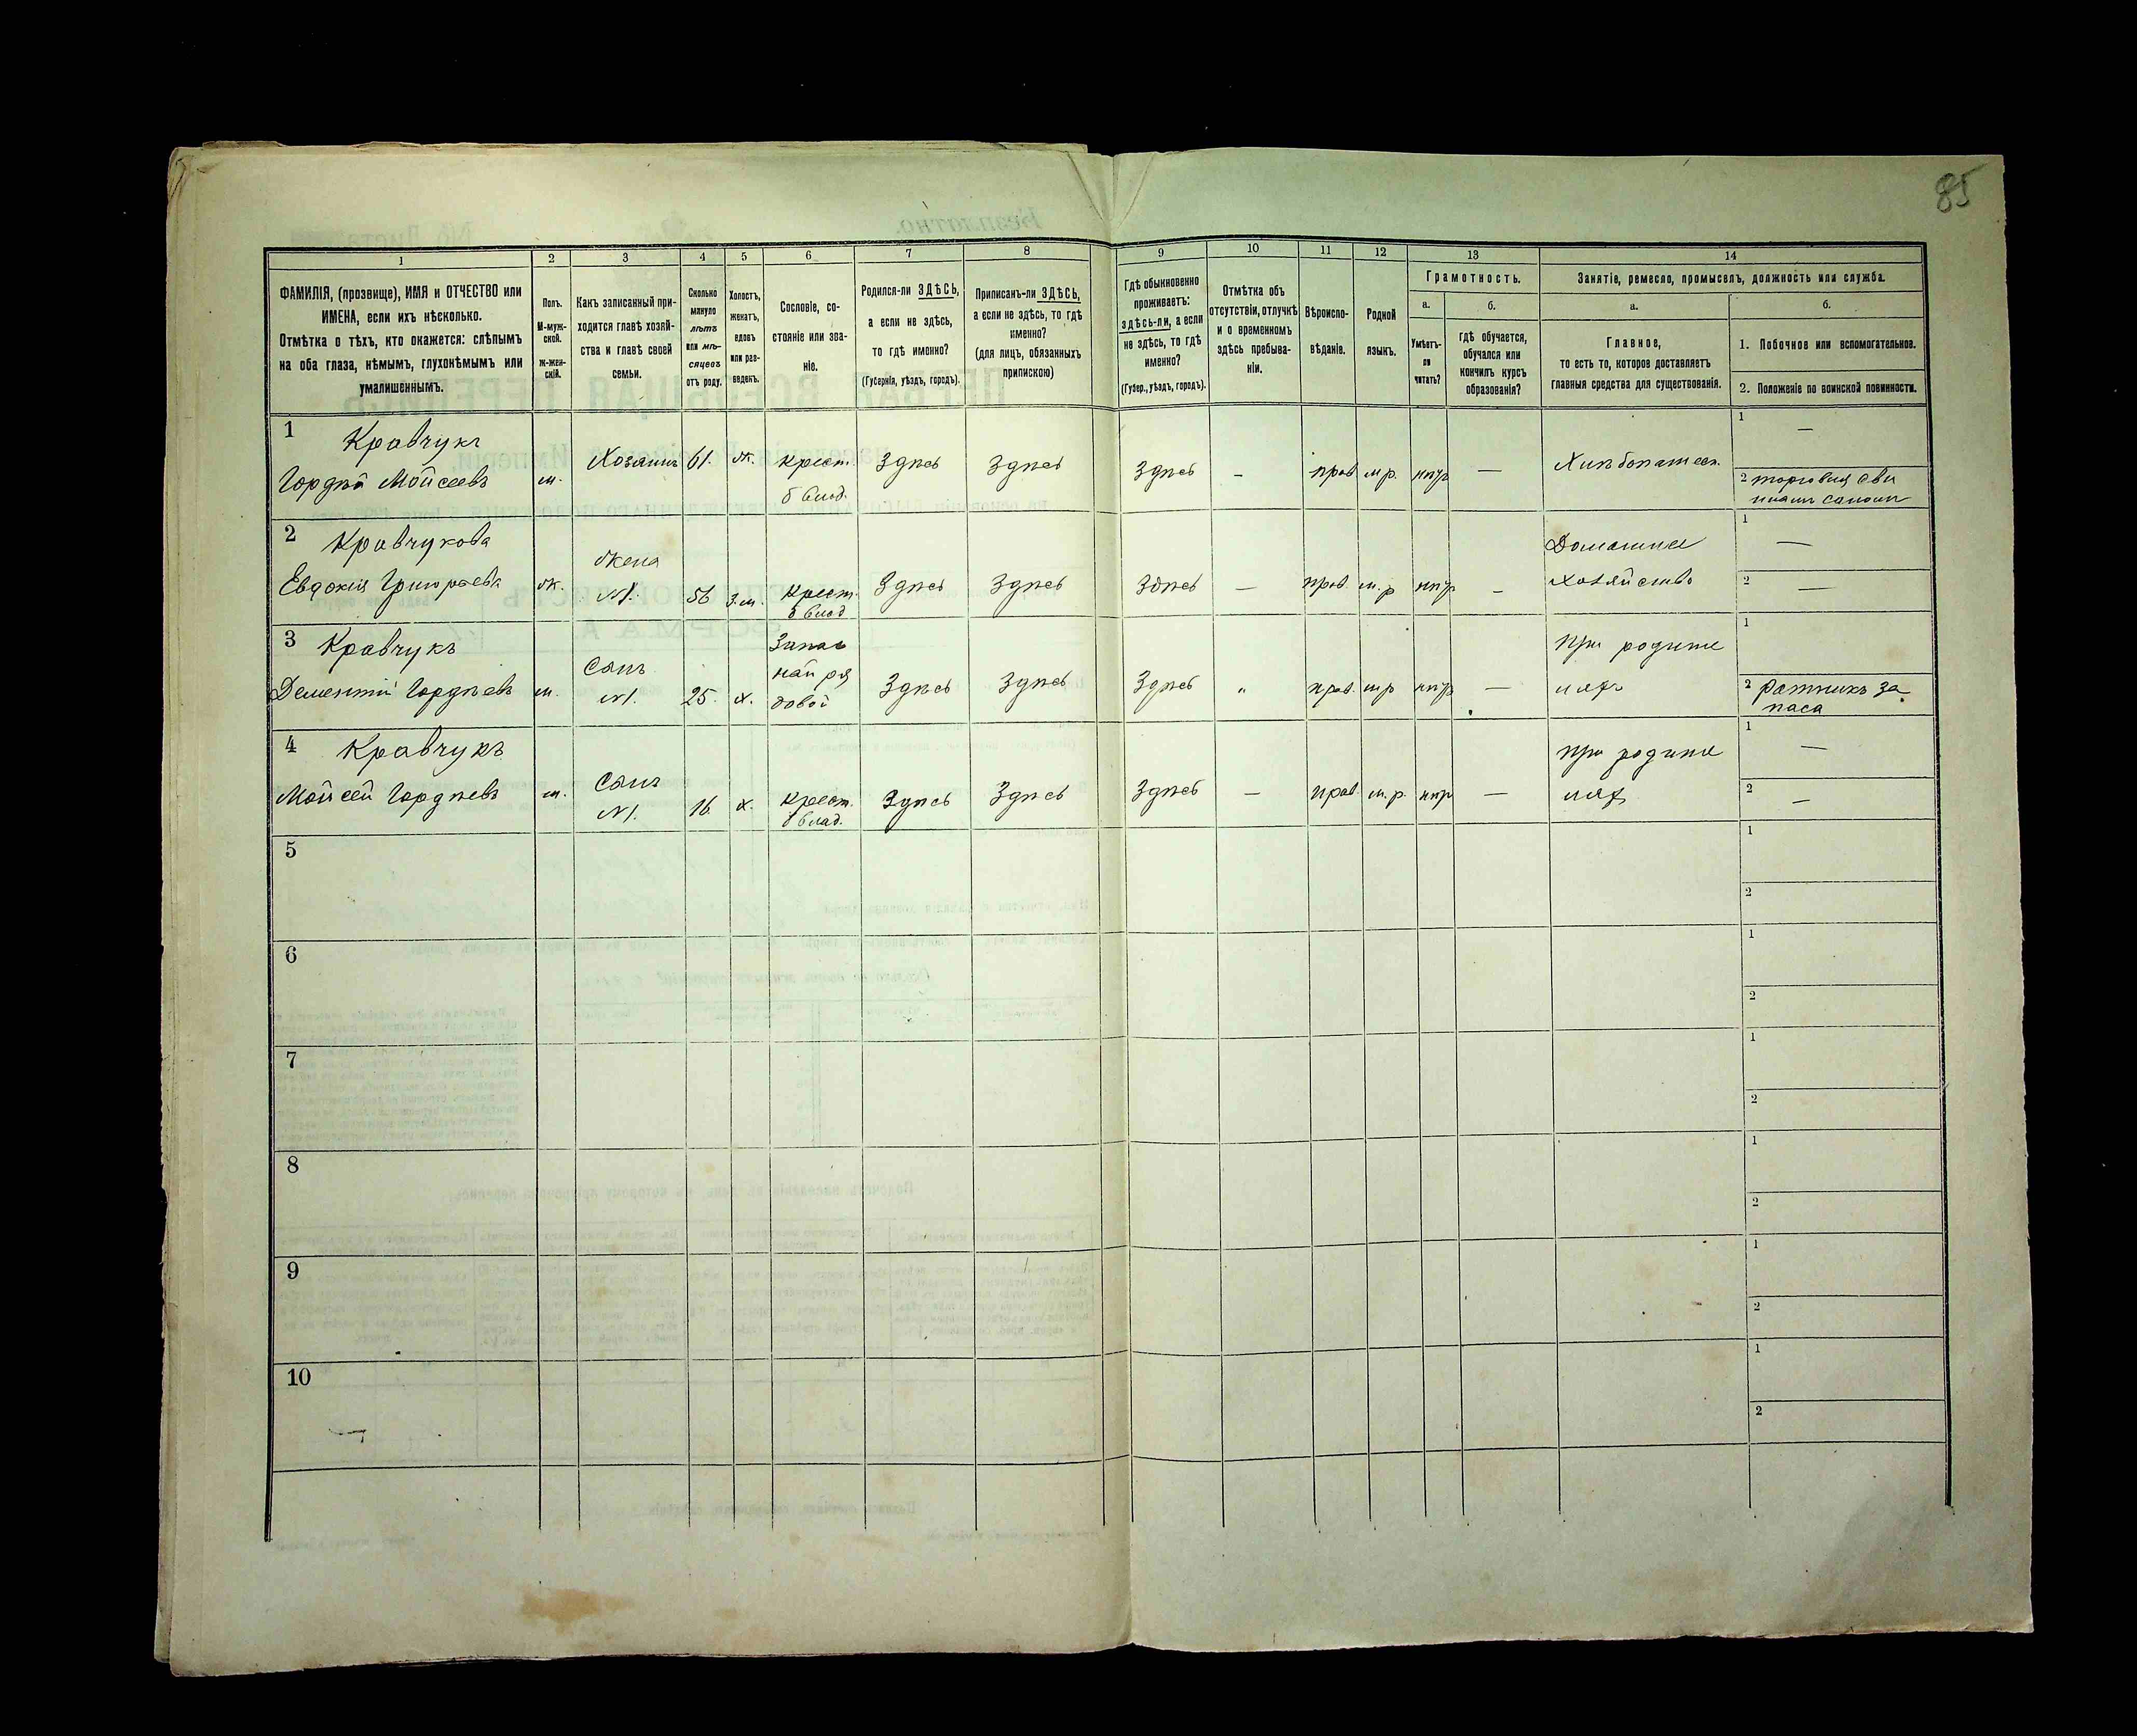 85
1
2
3
4
5
6
7
8
9
10
11
12
13
14
ФАМИЛІЯ, (прозвище), ИМЯ и ОТЧЕСТВО или
ИМЕНА, если ихъ нѣсколько.
Отмѣтка о тѣхъ, кто окажется: слѣпымъ
на оба глаза, нѣмымъ, глухонѣмымъ или
умалишеннымъ.
Полъ.
М-муж-
ской.
ж-жен-
скій.
Какъ записанный при-
ходится главѣ хозяй-
ства и главѣ своей
семьи.
Сколько
минуло
лѣтъ
или мѣ-
сяцевъ
отъ роду.
Холостъ,
женатъ,
вдовъ
или раз-
веденъ.
Сословіе, со-
стояніе или зва-
ніе.
Родился-ли ЗДѢСЬ,
а если не здѣсь,
то гдѣ именно?
(Губернія, уѣздъ, городъ).
Приписанъ-ли ЗДѢСЬ,
а если не здѣсь, то гдѣ
именно?
(для лицъ, обязанныхъ
припискою)
Гдѣ обыкновенно
проживаетъ:
здѣсь-ли, а если
не здѣсь, то гдѣ
именно?
(Губер., уѣздъ, городъ).
Отмѣтка объ
отсутствіи, отлучкѣ
и о временномъ
здѣсь пребыва-
ніи.
Вѣроиспо-
вѣданіе.
Родной
языкъ.
Грамотность.
а.
б.
Умѣетъ-
ли
читать?
гдѣ обучается,
обучался или
кончилъ курсъ
образованія?
Занятіе, ремесло, промыселъ, должность или служба.
а.
б.
Главное,
то есть то, которое доставляетъ
главныя средства для существованія.
1. Побочное или вспомогательное.
2. Положеніе по воинской повинности.
1 Кравчукъ
Гордѣй Мойсеевъ м. Хозяинъ 61. ж. крест. Здѣсь Здѣсь Здѣсь — прав м.р. —
б влад.
1 —
2 торговця сви
2 Кравчукова
Евдокія Григорьева ж. жена 56 з.м. крест. Здѣсь Здѣсь Здѣсь — прав. м.р —
N1. б влад
Домашнее
хозяйство
1 —
2 —
3 Кравчукъ
Дементій Гордѣевъ м. Сынъ 25. х. Запас Здѣсь Здѣсь Здѣсь " прав. м.р —
N1.
ной ря
довой
при родите
ляхъ
1
2 ратникъ за
паса
4 Кравчукъ
Мойсей Гордѣевъ м. Сынъ 16. х. крест. Здѣсь Здѣсь Здѣсь — прав. м.р. —
N1. б влад.
при родите
ляхъ
1 —
2 —
5
1
2
6
1
2
7
1
2
8
1
2
9
1
2
10
1
2